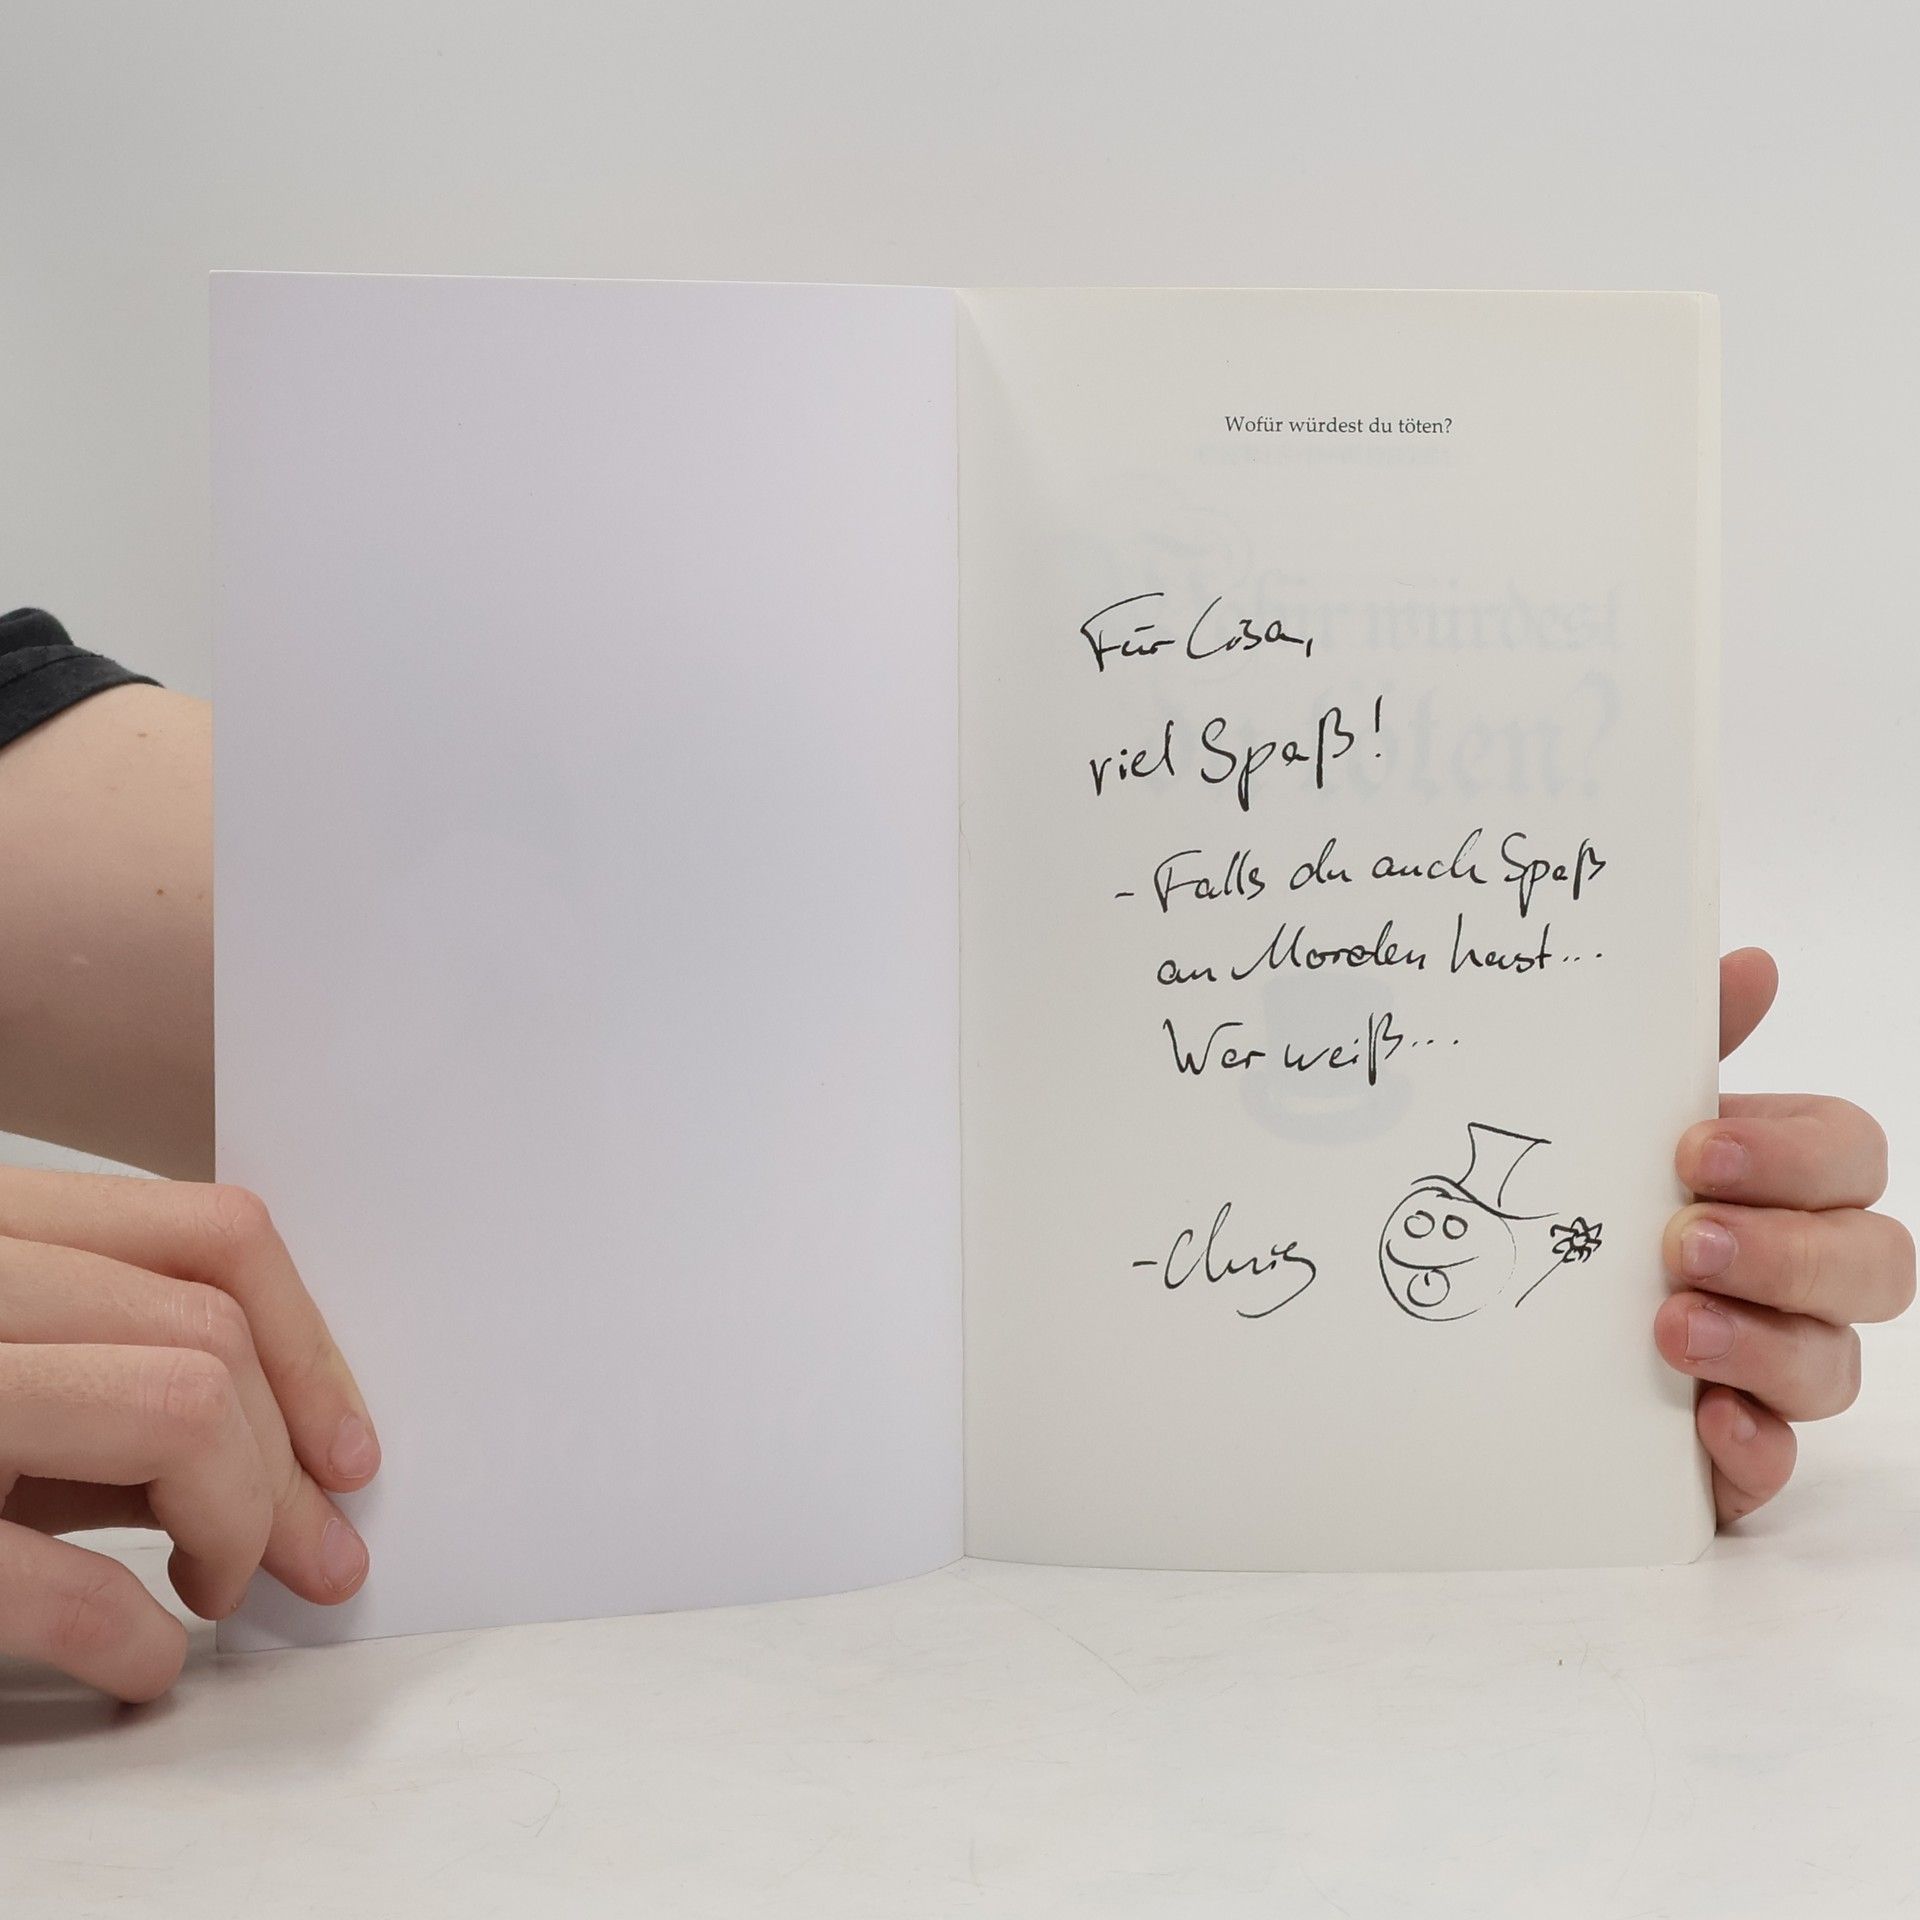 Wofür würdest du töten?
Für Lisa,
viel Spaß!
- Falls du auch Spaß
an Morden hast...
Wer weiß...
- Chris